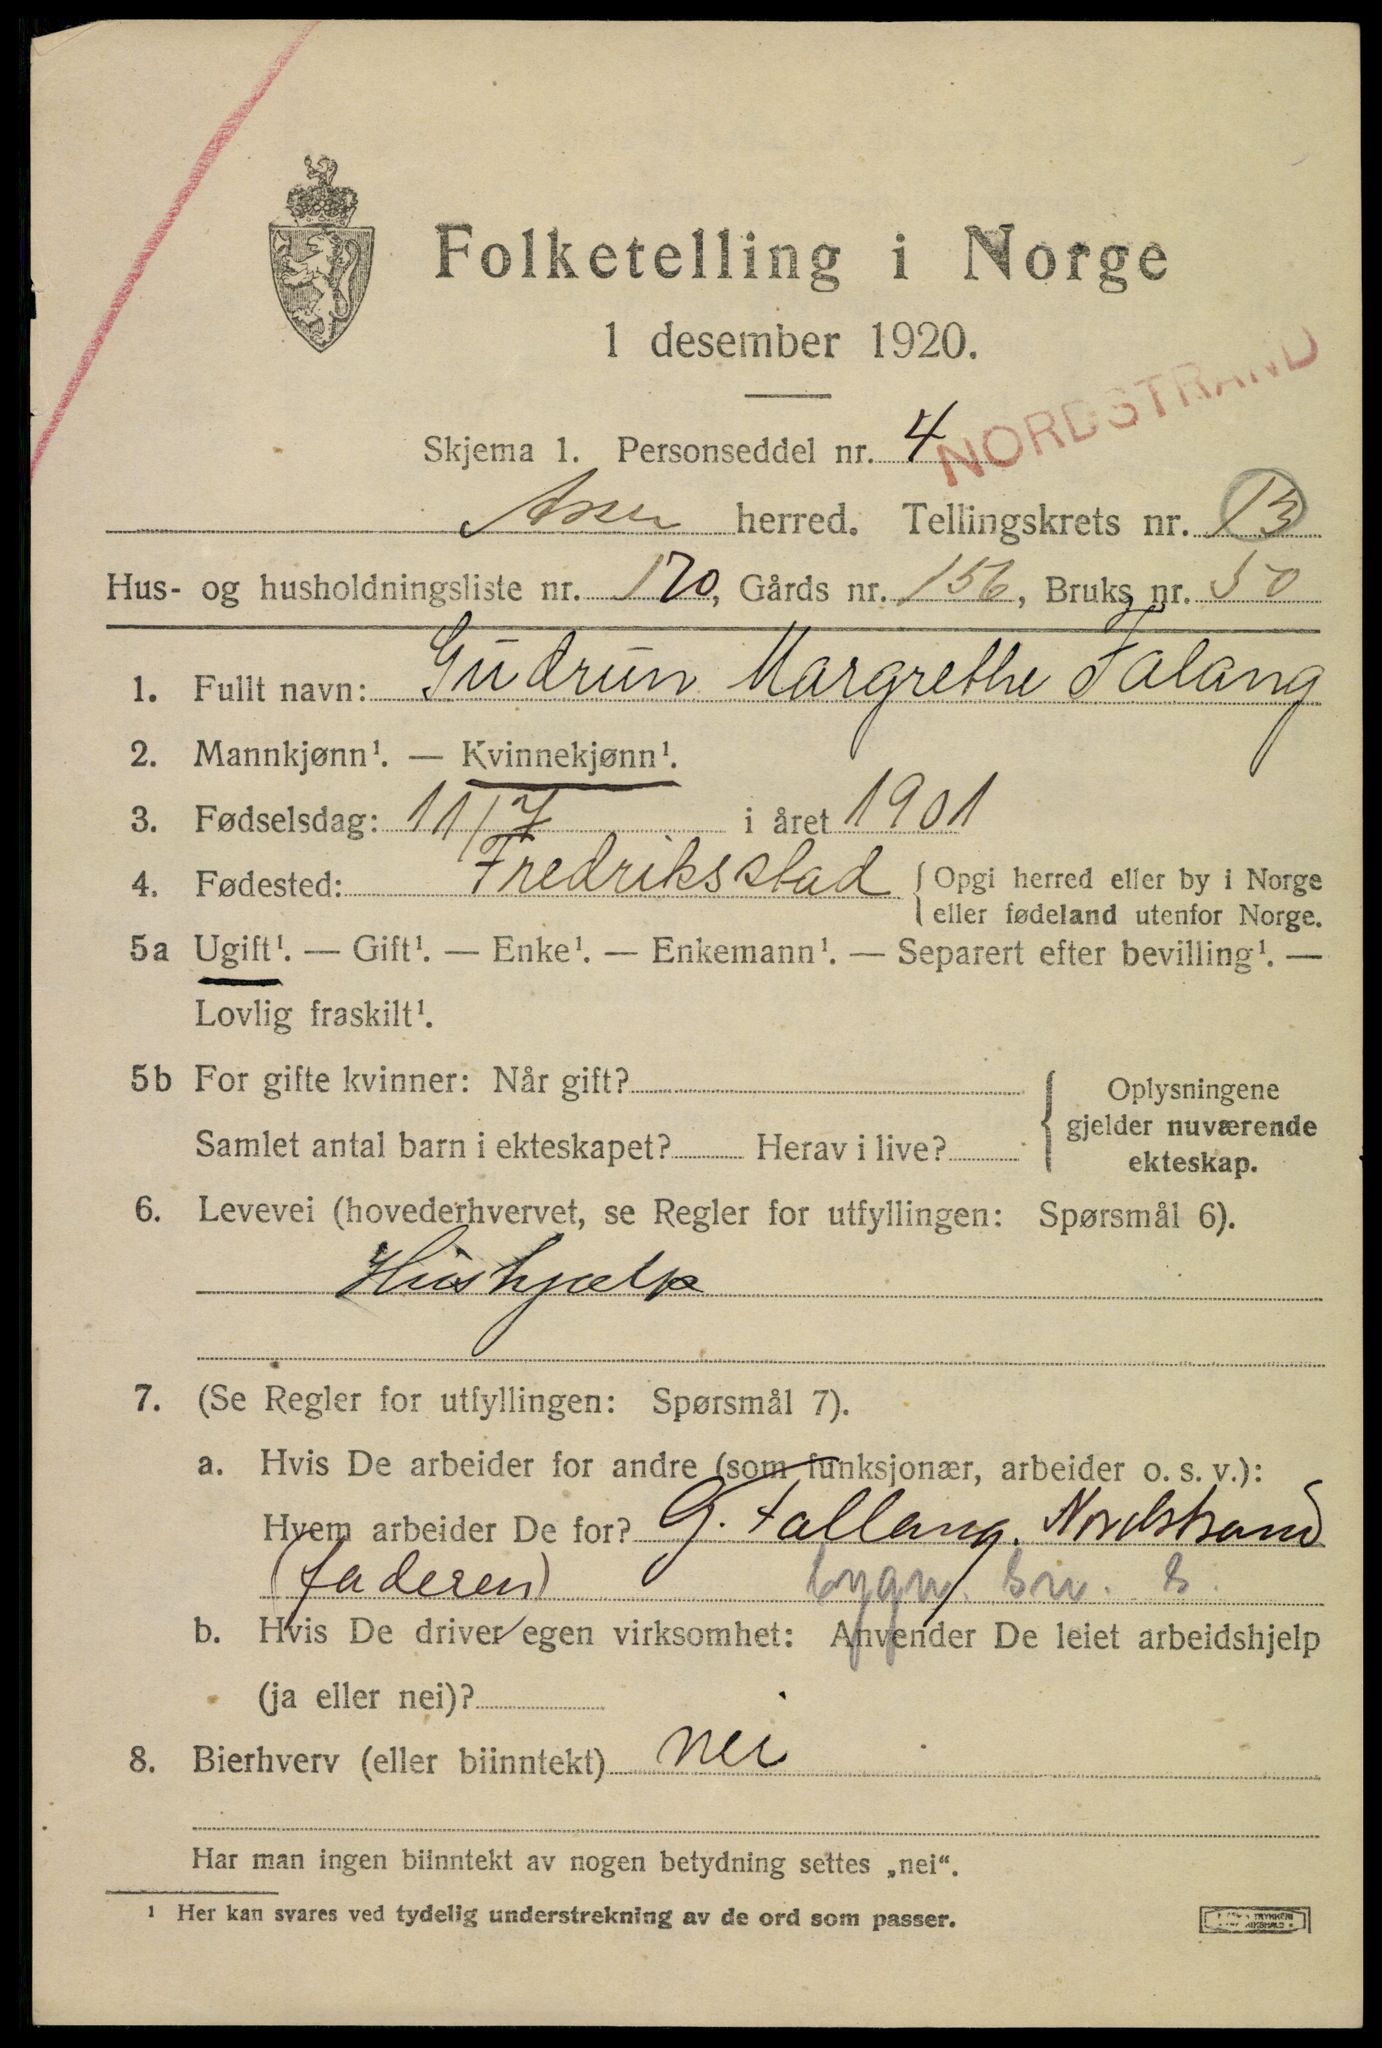 Folketelling i Norge
1 desember 1920.
NORDSTRAND
Skjema 1. Personseddel nr. 4
Aker herred. Tellingskrets nr. 13
Hus- og husholdningsliste nr. 170, Gårds nr. 156, Bruks nr. 50
1. Fullt navn: Gudrun Margrethe Falang
2. Mannkjønn¹. — Kvinnekjønn¹.
3. Fødselsdag: 11/7 i året 1901
4. Fødested: Fredriksstad { Opgi herred eller by i Norge
eller fødeland utenfor Norge.
5a Ugift¹. — Gift¹. — Enke¹. — Enkemann¹. — Separert efter bevilling¹. —
Lovlig fraskilt¹.
5b For gifte kvinner: Når gift?
Samlet antal barn i ekteskapet? Herav i live?
{ Oplysningene
gjelder nuværende
ekteskap.
6. Levevei (hovederhvervet, se Regler for utfyllingen: Spørsmål 6).
Hushjælp
7. (Se Regler for utfyllingen: Spørsmål 7).
a. Hvis De arbeider for andre (som funksjonær, arbeider o. s. v.):
Hvem arbeider De for? G. Fallang. Nordstrand
(faderen)
b. Hvis De driver egen virksomhet: Anvender De leiet arbeidshjelp
(ja eller nei)?
8. Bierhverv (eller biinntekt) nei
Har man ingen biinntekt av nogen betydning settes „nei“.
¹ Her kan svares ved tydelig understrekning av de ord som passer.